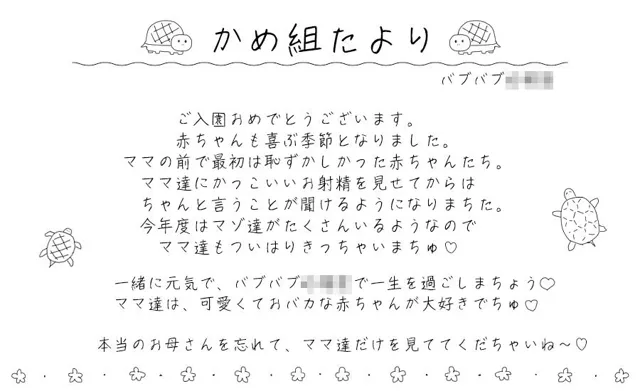 かめ組たより
バブバブ
ご入園おめでとうございます。
赤ちゃんも喜ぶ季節となりました。
ママの前で最初は恥ずかしかった赤ちゃんたち。
ママ達にかっこいいお射精を見せてからは
ちゃんと言うことが聞けるようになりまちた。
今年度はマゾ達がたくさんいるようなので
ママ達もついはりきっちゃいまちゅ♡
一緒に元気で、バブバブ
で一生を過ごしまちょう♡
ママ達は、可愛くておバカな赤ちゃんが大好きでちゅ♡
本当のお母さんを忘れて、ママ達だけを見ててくだちゃいね～♡